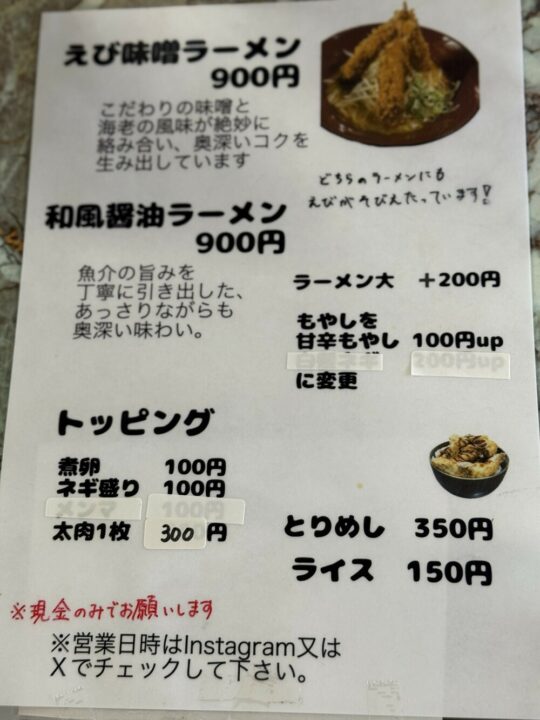 えび味噌ラーメン
900円
こだわりの味噌と
海老の風味が絶妙に
絡み合い、奥深いコクを
生み出しています
どちらのラーメンにも
えびがそびえたっています!
和風醤油ラーメン
900円
魚介の旨みを
丁寧に引き出した、
あっさりながらも
奥深い味わい。
ラーメン大 +200円
もやしを
甘辛もやし 100円up
200円up
に変更
トッピング
煮卵 100円
ネギ盛り 100円
メンマ 100円
太肉1枚 300円
とりめし 350円
ライス 150円
※現金のみでお願いします
※営業日時はInstagram又は
Xでチェックして下さい。